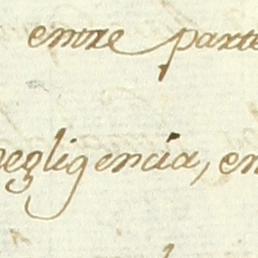 entre parte
negligencia, en